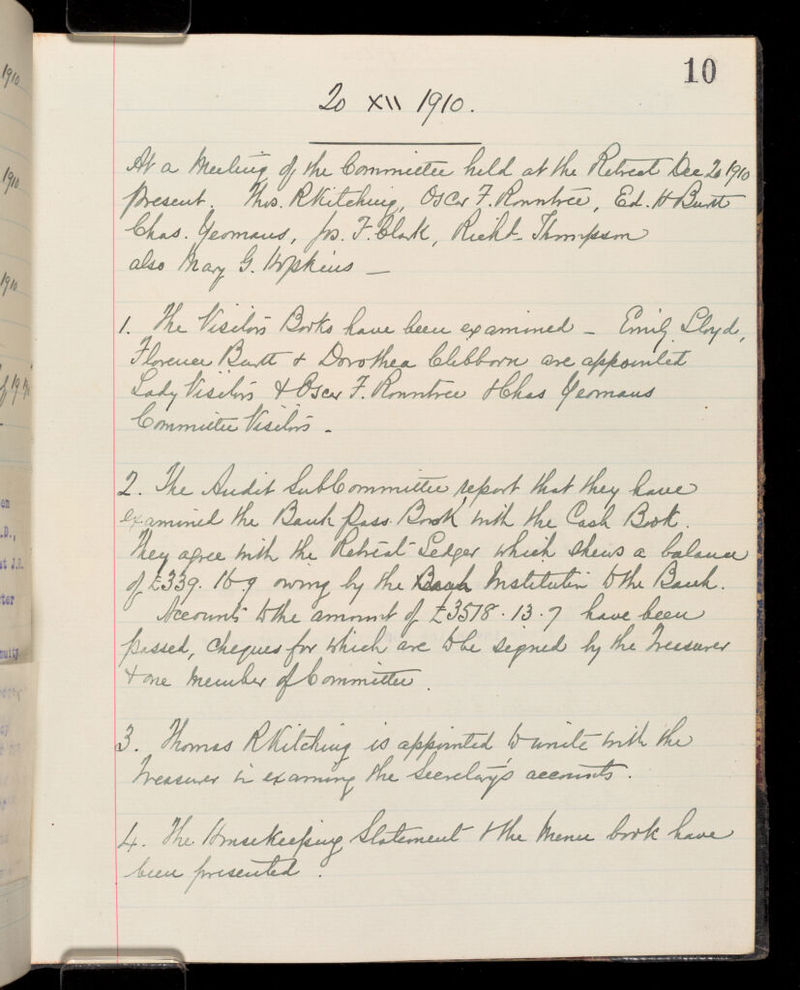 10
20 XII 1910.
At a Meeting of the Committee held at the Retreat Dec 20 1910
Present. Thos. R Kitching, Oscar F. Rowntree, Ed. H Burtt
Chas. Yeomans, Jos. F. Clark, Richd. Thompson
also Mary G. Hopkins —
1. The Visitors Books have been examined – Emily Lloyd,
Florence Burtt & Dorothea Clibborn are appointed
Lady Visitors & Oscar F. Rowntree & Chas Yeomans
Committee Visitors –
2. The Audit SubCommittee report that they have
examined the Bank Pass Book with the Cash Book.
They agree with the Retreat Ledger which shews a balance
of £339. 16. 9 owing by the Institution to the Bank.
Accounts to the amount of £3518. 13. 7 have been
passed, cheques for which are to be signed by the Treasurer
& one Member of Committee.
3. Thomas R Kitching is appointed to unite with the
Treasurer in examing the Secretary's accounts.
4. The Housekeeping Statement & the Menu book have
been presented.
1910
1910
1910